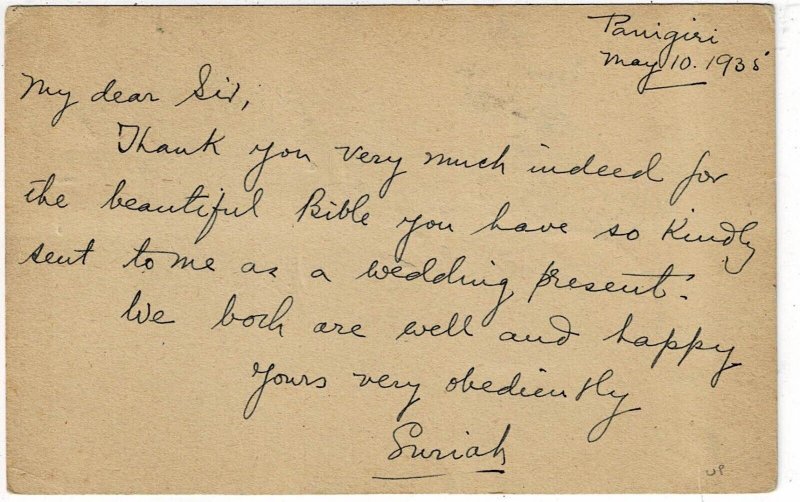 Panigiri
May 10. 1935
My dear Sir,
Thank you very much indeed for
the beautiful Bible you have so kindly
sent to me as a wedding present.
We both are well and happy
Yours very obediently
Suriah